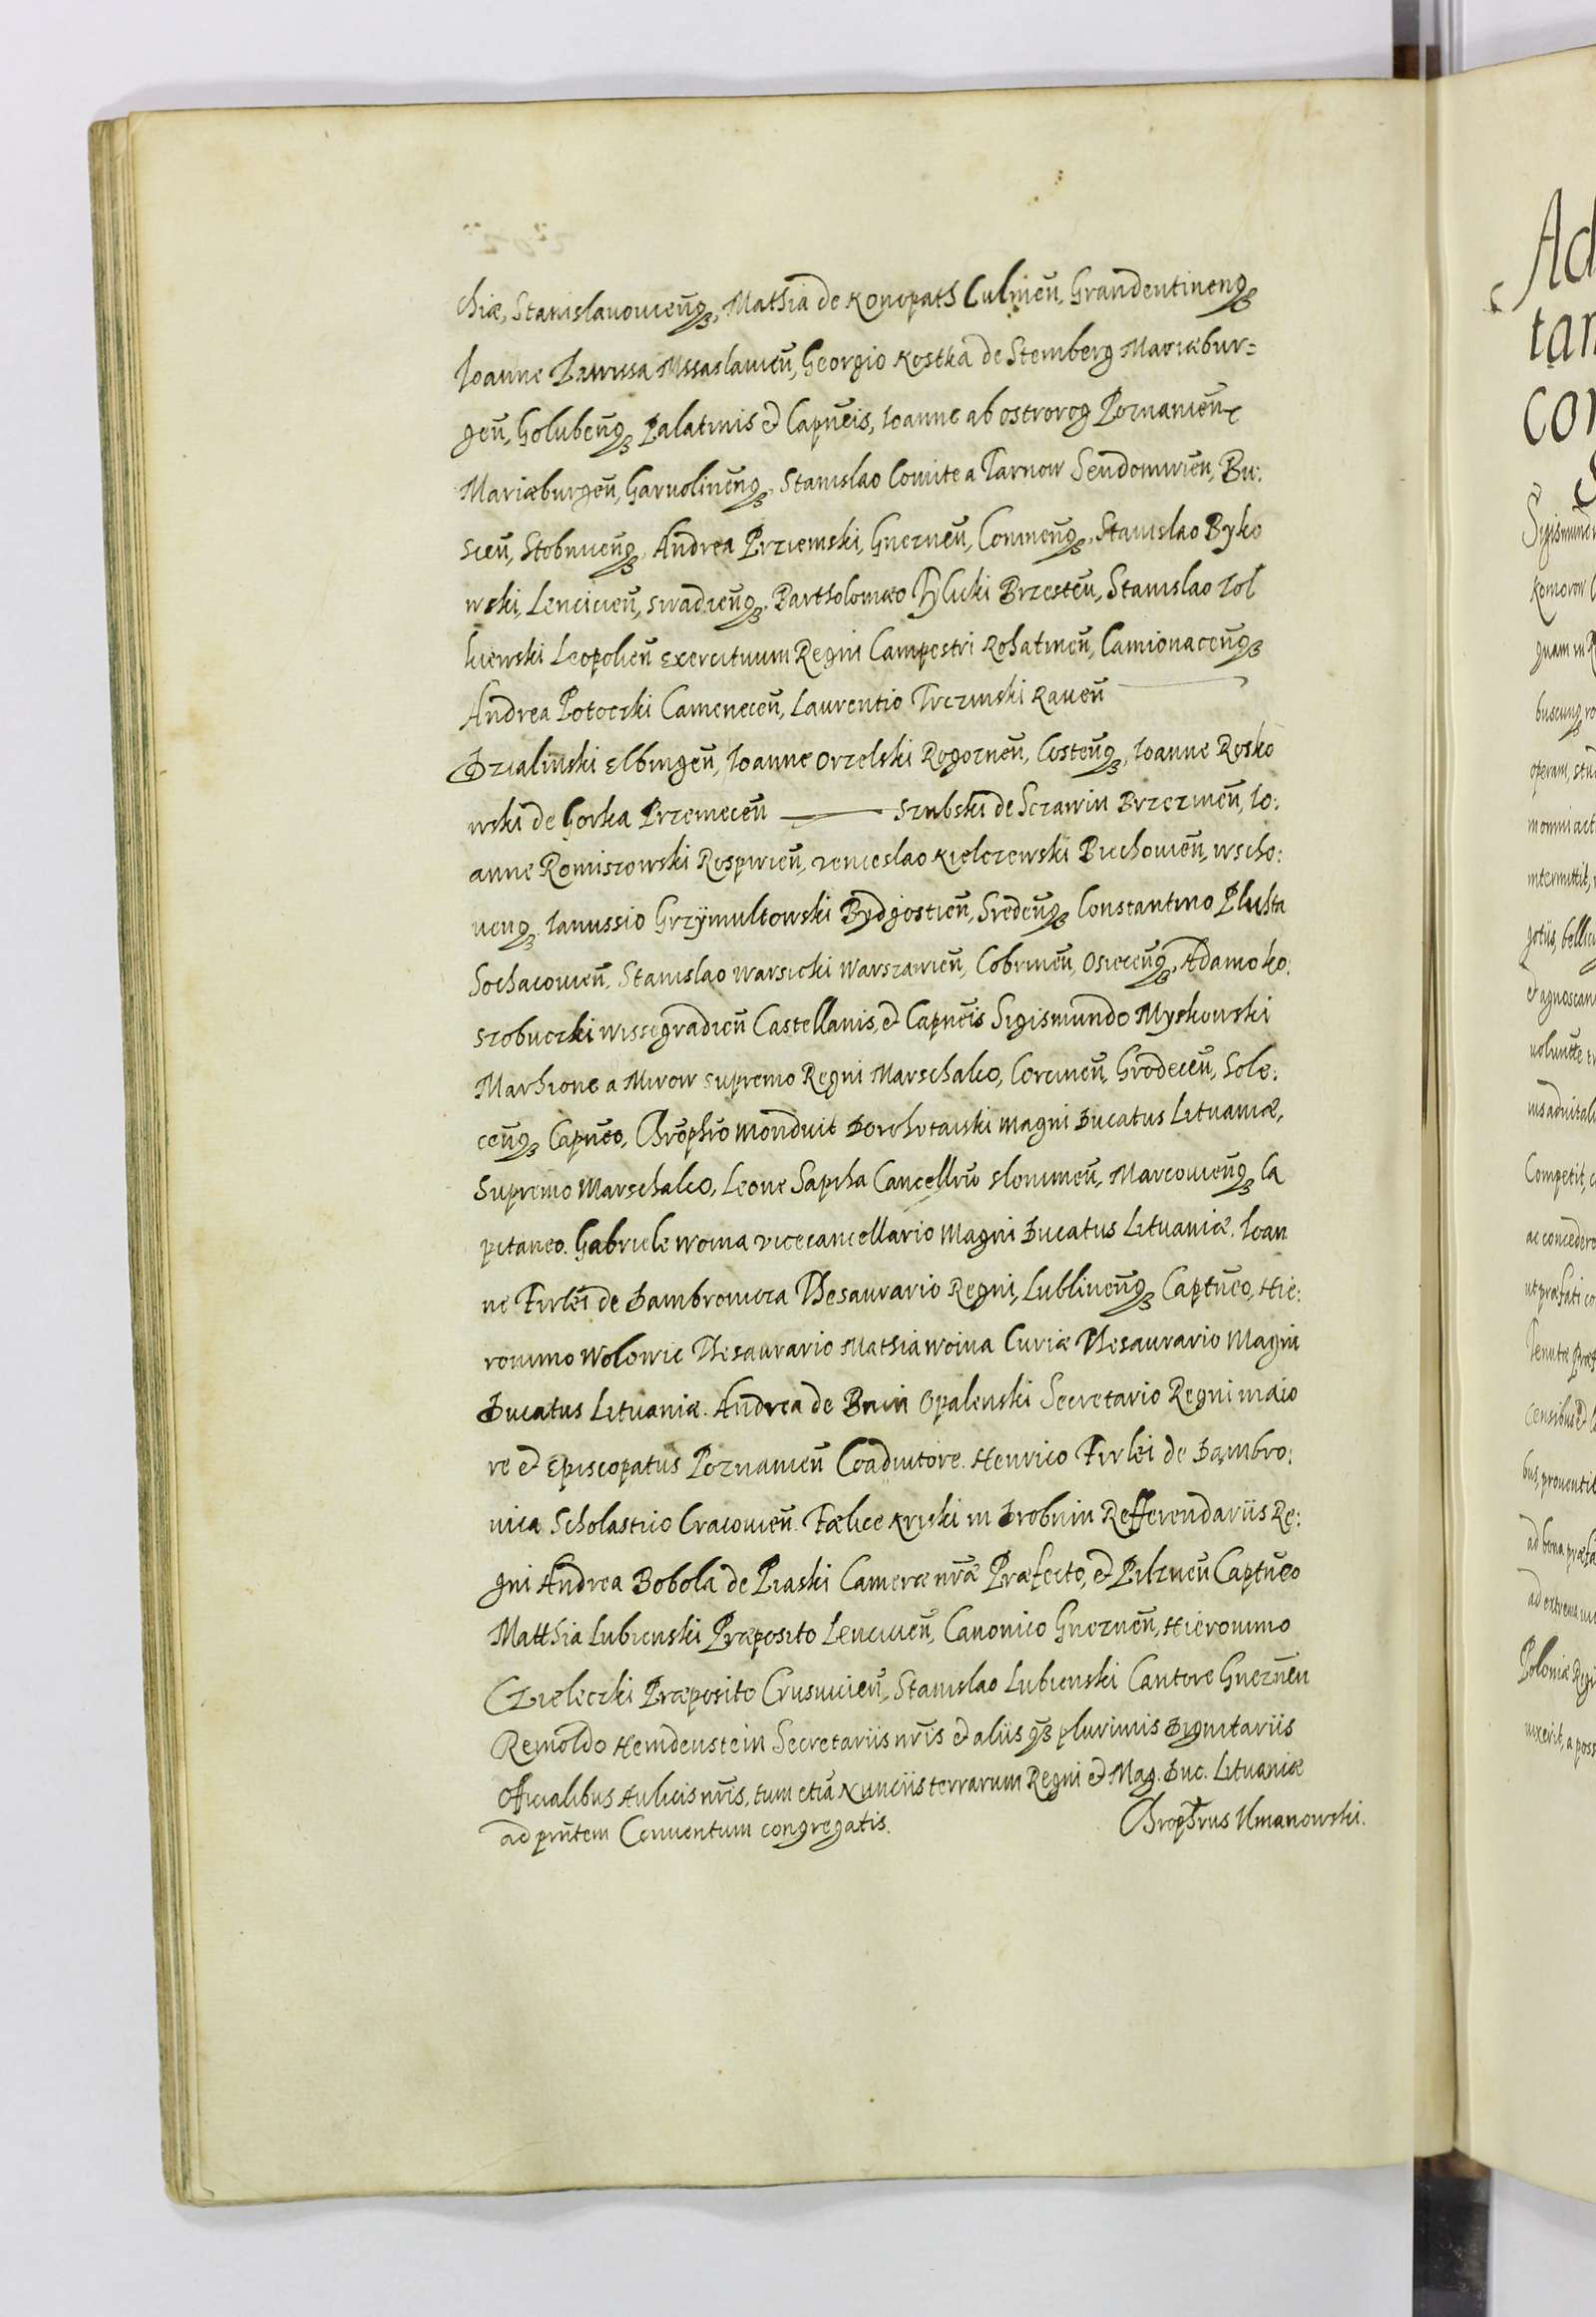 chiæ, Stanislauouieñqꝫ, Mathia de Konopath Culmeñ, Grandentinenqꝫ
Ioanne Zawissa Mssaslauieñ, Georgio Kostka de Stemberg Mariæbur=
geñ, Golubeñqꝫ Palatinis et Capñeis, Ioanne ab Ostrorog Poznanieñ
Mariæburgeñ, Garuolineñqꝫ, Stanislao Comite a Tarnow Sendomirieñ, Bu:
sceñ, Stobniceñqꝫ, Andrea Przyemski, Gnezneñ, Conineñqꝫ, Stanislao Byko
wski, Lencicieñ, Siradzieñqꝫ, Bartholomæo Dzylicki Brzesteñ, Stanislao Zol
kiewski Leopolieñ Exercituum Regni Campestri Rohatineñ, Camionaceñqꝫ
Andrea Potoczki Cameneceñ, Laurentio Trczinski Raueñ
Dzialinski Elbingeñ, Ioanne Orzelski Rogozneñ, Costeñqꝫ, Ioanne Rosko
wski de Gorka Przemeceñ Szubski de Sczawin Brzezineñ, Io:
anne Romiszowski Rospirieñ, Venceslao Kielczewski Biechouieñ, Wscho:
ueñqꝫ. Ianussio Grzymultowski Bydgostieñ, Sredeñqꝫ Constantino Plichta
Sochacouieñ, Stanislao Warsicki Warszauieñ, Cobrineñ, Osieceñqꝫ, Adamo Ko:
szobuczki Wissegradieñ Castellanis, et Capñeis Sigismundo Myskowski
Marhione a Mirow supremo Regni Marschalco, Corcineñ, Grodeceñ, Sole:
ceñqꝫ Capñeo, Chrophro Monduit Dorohotaiski Magni Ducatus Lituaniæ,
Supremo Marschalco, Leone Sapiha Cancellrio Slonimeñ, Marcouieñqꝫ Ca
pitaneo. Gabriele Woina Vicecancellario Magni Ducatus Lituaniæ. Ioan
ne Firlei de Dambrouicza Thesaurario Regni, Lublineñqꝫ Captñeo, Hie:
ronimo Wolowic Thesaurario Mathia Woina Curiæ Thesaurario Magni
Ducatus Lituaniæ. Andrea de Bnin Opalenski Secretario Regni maio
re et Episcopatus Poznanieñ Coadiutore. Henrico Firlei de Dambro:
uica Scholastico Cracouieñ. Fælice Kriski in Drobnin Refferendariis Re:
gni Andrea Bobola de Piaski Cameræ nr̃æ Præfecto, et Pilzneñ Captñeo
Matthia Lubienski Præposito Lencicieñ, Canonico Gnezneñ, Hieronimo
Czieleczki Præposito Crusuicieñ, Stanislao Lubienski Cantore Gnezneñ
Reinoldo Heindenstein Secretariis nr̃is et aliis qꝫ plurimis Dignitariis
Officialibus Aulicis nr̃is, tum etiã Nunciis terrarum Regni et Mag. Duc. Lituaniæ
ad prñtem Conuentum congregatis. Chrophrus Umanowski.